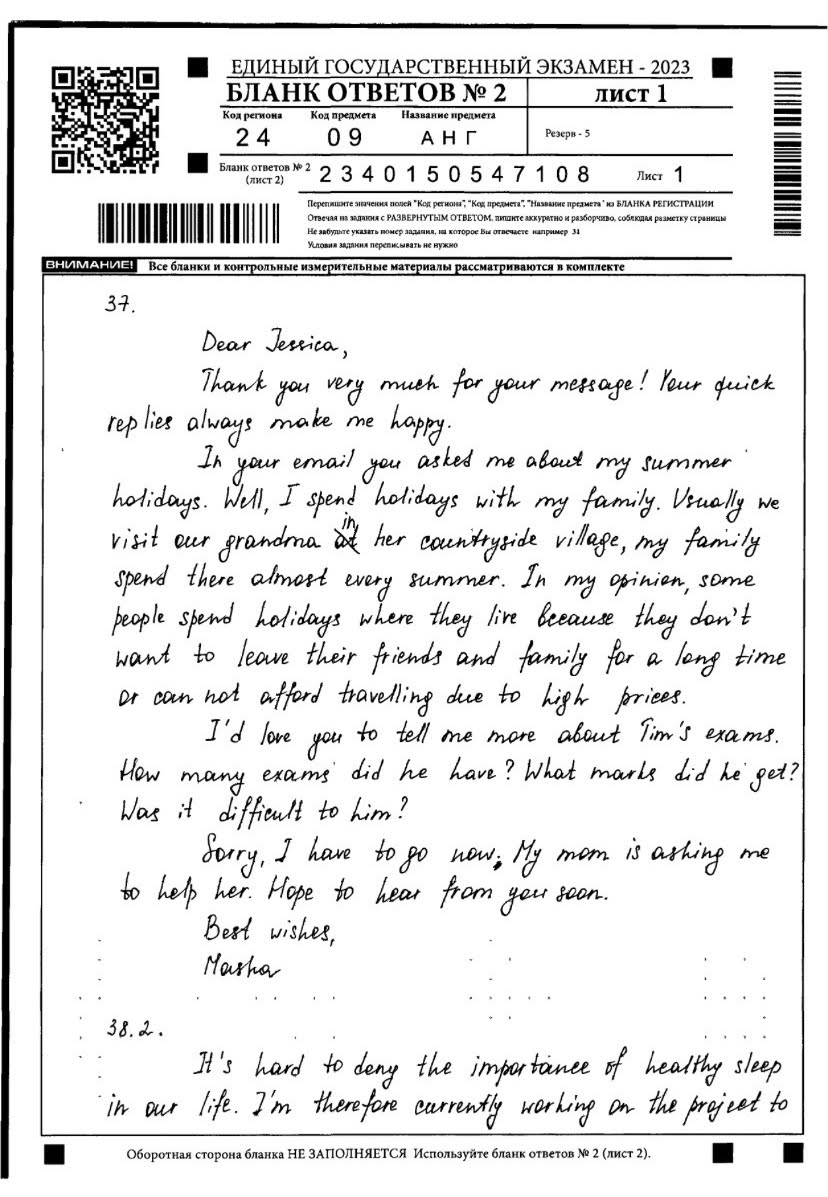 ЕДИНЫЙ ГОСУДАРСТВЕННЫЙ ЭКЗАМЕН - 2023
БЛАНК ОТВЕТОВ № 2
лист 1
Код региона Код предмета Название предмета
24 09 АНГ
Резерв - 5
Бланк ответов № 2 (лист 2) 2340150547108 Лист 1
Перепишите значения полей "Код региона", "Код предмета", "Название предмета" из БЛАНКА РЕГИСТРАЦИИ
Отвечая на задания с РАЗВЕРНУТЫМ ОТВЕТОМ, пишите аккуратно и разборчиво, соблюдая разметку страницы
Не забудьте указать номер задания, на которое Вы отвечаете например 31
Условия задания переписывать не нужно
ВНИМАНИЕ! Все бланки и контрольные измерительные материалы рассматриваются в комплекте
37.
Dear Jessica,
Thank you very much for your message! Your quick
replies always make me happy.
In your email you asked me about my summer
holidays. Well, I spend holidays with my family. Usually we
visit our grandma in her countryside village, my family
spend there almost every summer. In my opinion, some
people spend holidays where they live because they don't
want to leave their friends and family for a long time
or can not afford travelling due to high prices.
I'd love you to tell me more about Tim's exams.
How many exams did he have? What marks did he get?
Was it difficult to him?
Sorry, I have to go now. My mom is asking me
to help her. Hope to hear from you soon.
Best wishes,
Masha
38.2.
It's hard to deny the importance of healthy sleep
in our life. I'm therefore currently working on the project to
Оборотная сторона бланка НЕ ЗАПОЛНЯЕТСЯ Используйте бланк ответов № 2 (лист 2).